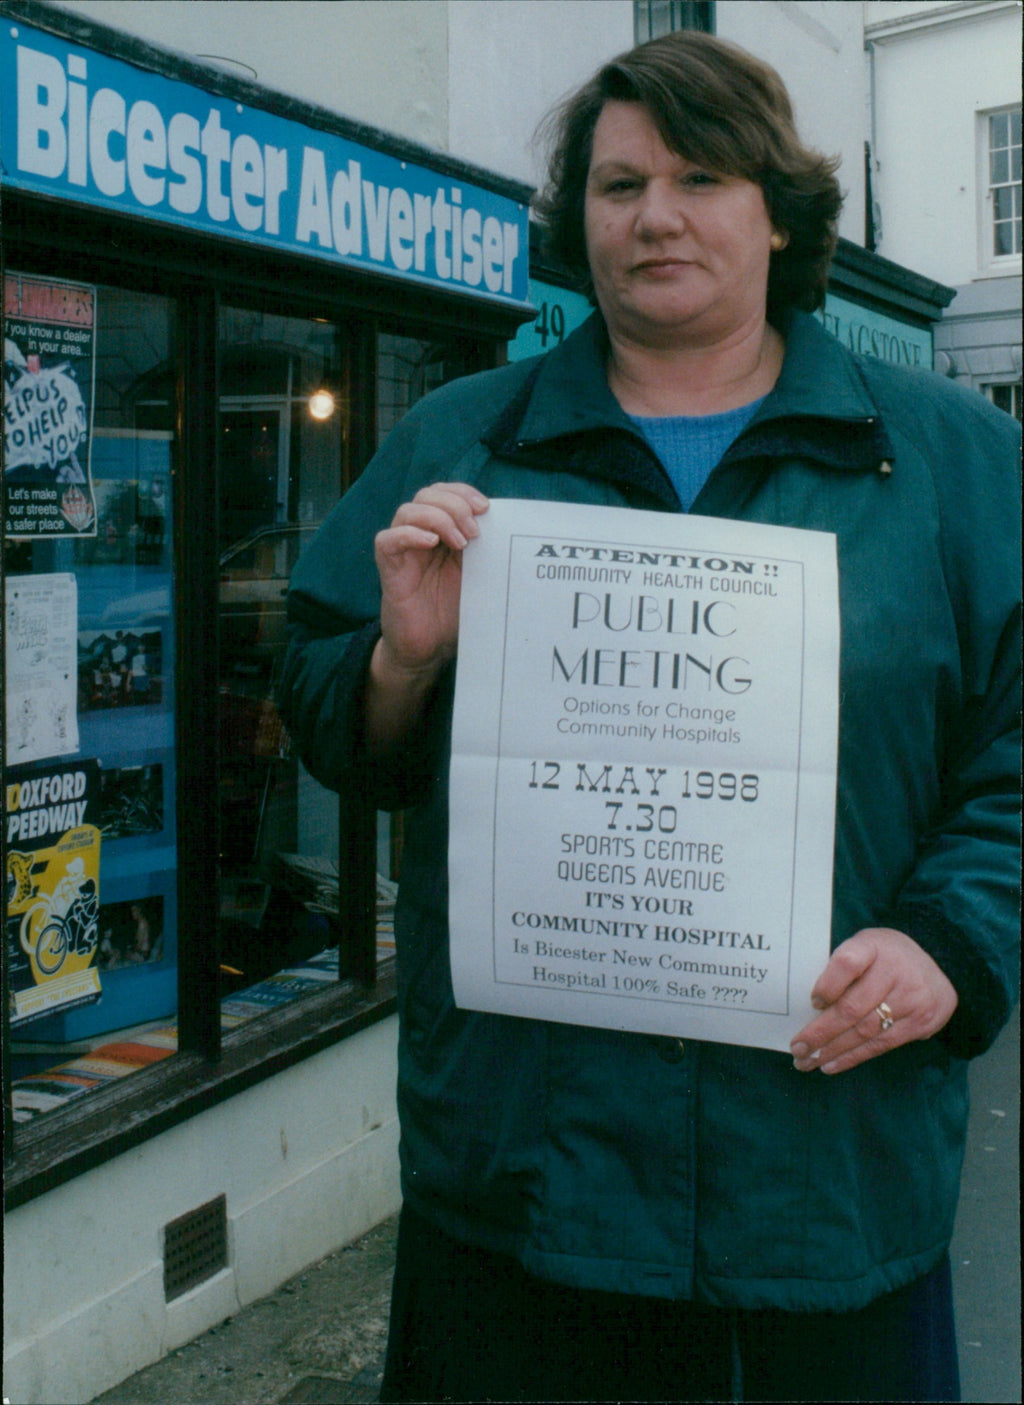 Bicester Advertiser
49
FLAGSTONE
f you know a dealer
in your area...
ELP US
TO HELP
YOU
Let's make
our streets
a safer place
OXFORD
PEEDWAY
ATTENTION !!
COMMUNITY HEALTH COUNCIL
PUBLIC
MEETING
Options for Change
Community Hospitals
12 MAY 1998
7.30
SPORTS CENTRE
QUEENS AVENUE
IT'S YOUR
COMMUNITY HOSPITAL
Is Bicester New Community
Hospital 100% Safe ????